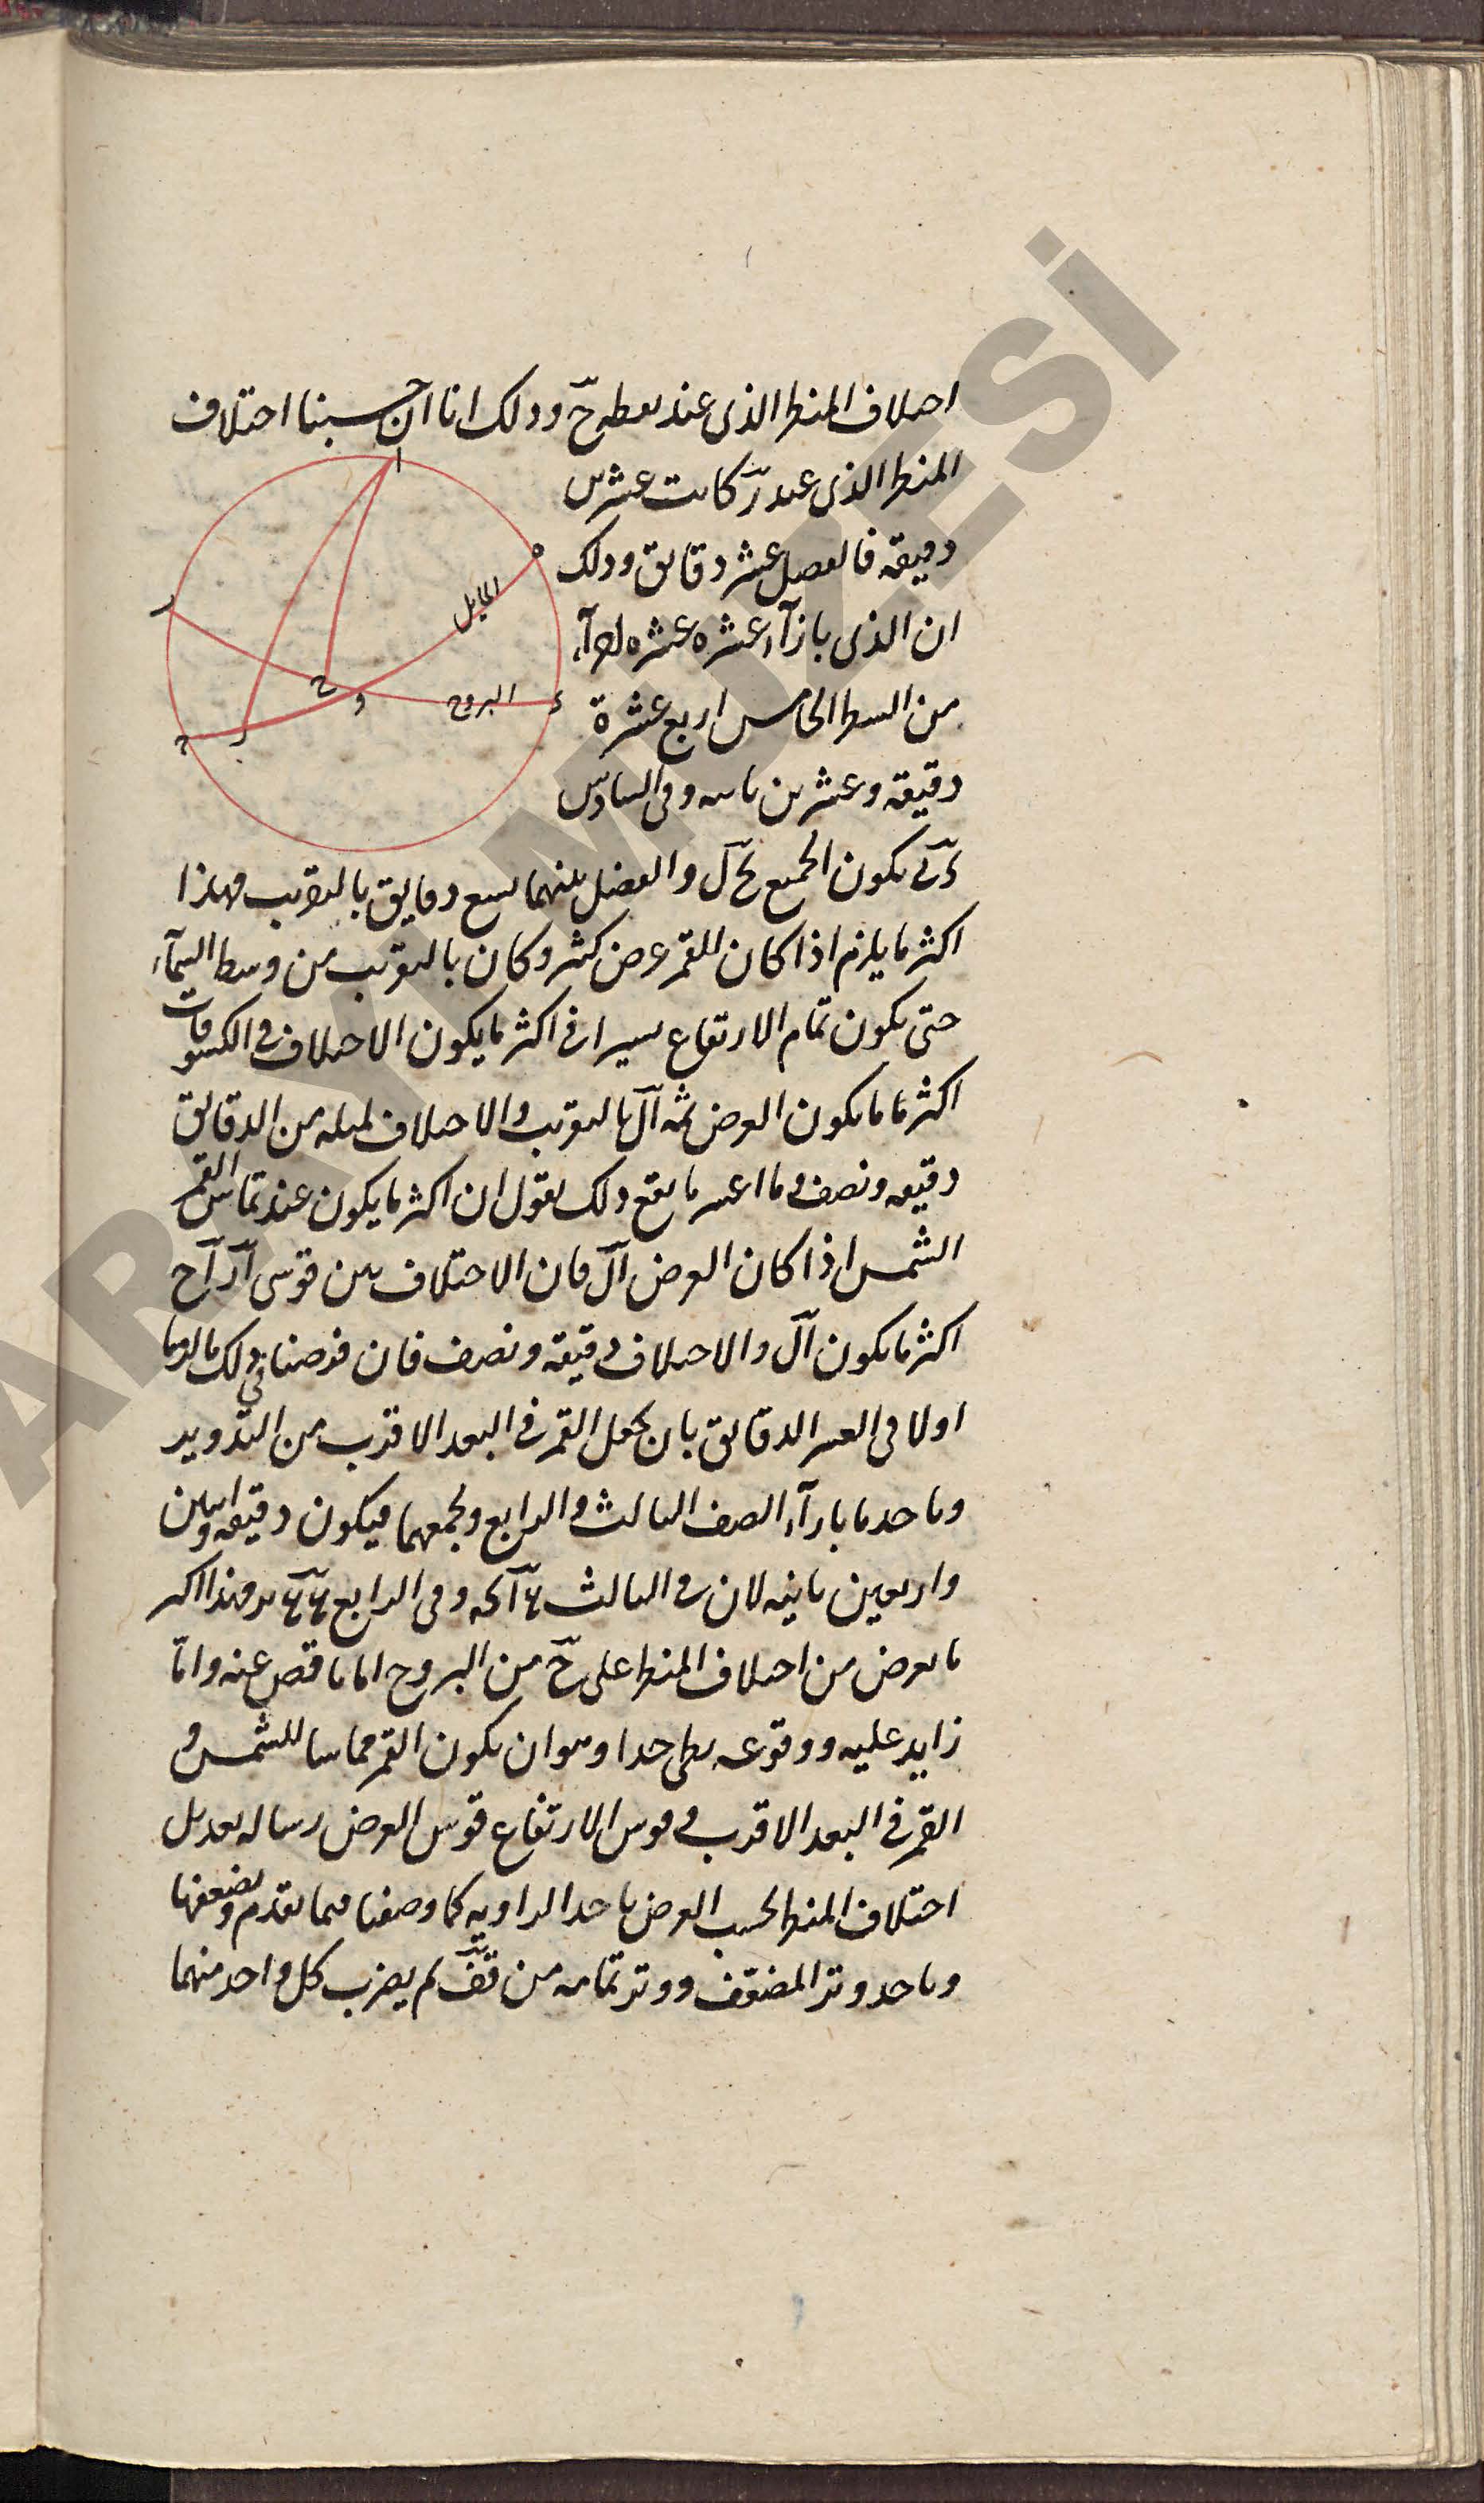 اختلاف المنظر الذى عند نقطه ح وذلك انا ان حسبنا اختلاف
المنظر الذى عند ر كانت عشرين
دقيقه فالفضل عشر دقايق وذلك
ان الذى بازآء عشره عشره
من السطر الخامس اربع عشرة
دقيقه وعشرين ثانيه وفى السادس
يكون الجميع والفضل بينهما سبع دقايق بالتقريب فهذا
اكثر ما يلزم اذا كان للقمر عرض كثير وكان بالتقريب من وسط السمآء
حتى يكون تمام الارتفاع يسيرا فى اكثر ما يكون الاختلاف فى الكسوفات
اكثر ما يكون العرض ثمه آل بالتقريب والاختلاف لمثله من الدقايق
دقيقه ونصف وما اعسر ما يقع ذلك نقول ان اكثر ما يكون عند تماس القمر
الشمس اذا كان العرض آل فان الاختلاف بين قوسى آر آح
اكثر ما يكون آل والاختلاف دقيقه ونصف فان فرضنا فى ذلك
اولا فى العشر الدقايق بان نجعل القمر فى البعد الاقرب من التدوير
وناخذ ما بازآء الصف الثالث والرابع ونجمعهما فيكون دقيقه واثنين
واربعين ثانيه لان فى الثالث وفى الرابع فهذا اكثر
ما يعرض من اختلاف المنظر على ح من البروج اما ناقص عنه واما
زايد عليه ووقوعه بطى جدا وهو ان يكون القمر مماسا للشمس و
القمر فى البعد الاقرب وقوس الارتفاع قوس العرض رساله تعديل
اختلاف المنظر بحسب العرض ناخذ الزاويه كما وصفنا فيما تقدم ونضعفها
وناخذ وتر المضعف ووتر تمامه من قف ثم يضرب كل واحد منهما
ا
ه
المايل
ب
ح
و
البروج
د
ر
ح